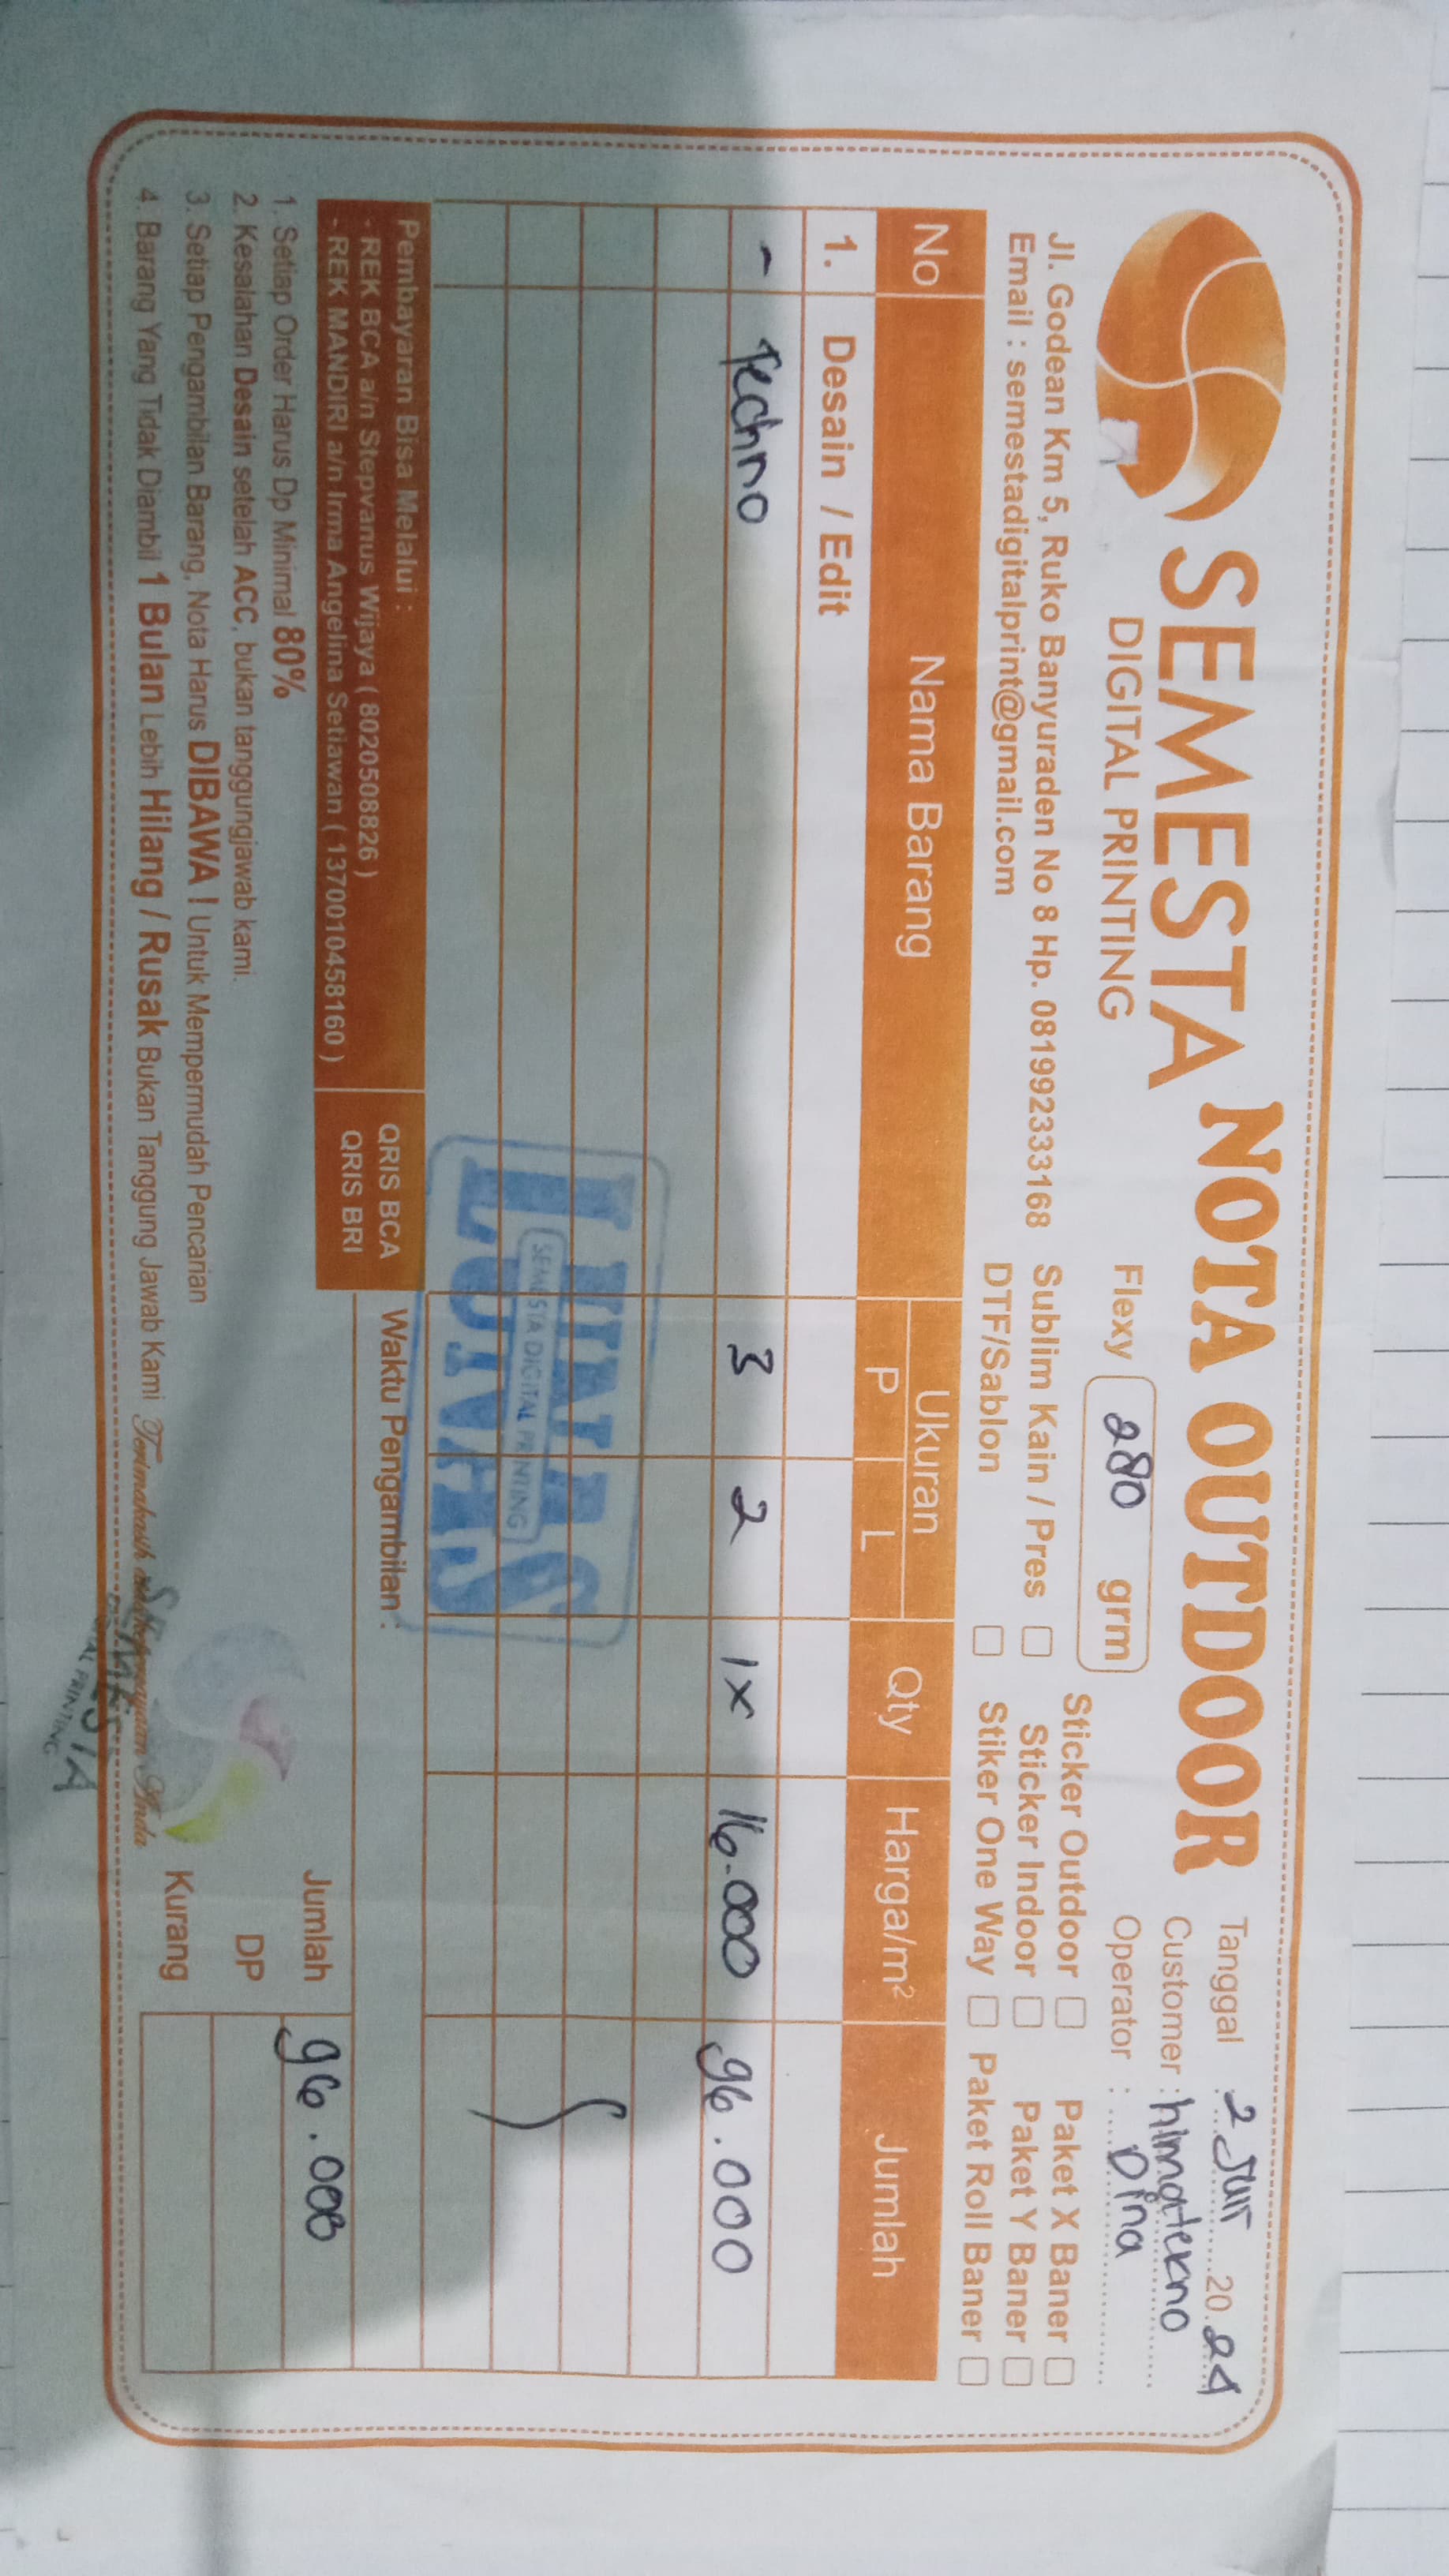 SEMESTA
DIGITAL PRINTING
Jl. Godean Km 5, Ruko Banyuraden No 8 Hp. 081992333168
Email : semestadigitalprint@gmail.com
NOTA OUTDOOR
Flexy 280 grm
Tanggal : 2 Juli 2024
Customer : himatekno
Operator : Dina
Sublim Kain / Pres
DTF/Sablon
Sticker Outdoor
Sticker Indoor
Stiker One Way
Paket X Baner
Paket Y Baner
Paket Roll Baner
No Nama Barang Ukuran P L Qty Harga/m² Jumlah
1. Desain / Edit
- Techno 3 2 1x 16.000 96.000
LUNAS
SEMESTA DIGITAL PRINTING
Pembayaran Bisa Melalui :
- REK BCA a/n Stepvanus Wijaya ( 8020508826 )
- REK MANDIRI a/n Irma Angelina Setiawan ( 1370010458160 )
QRIS BCA
QRIS BRI
Waktu Pengambilan :
Jumlah 96.000
DP
Kurang
1. Setiap Order Harus Dp Minimal 80%
2. Kesalahan Desain setelah ACC, bukan tanggungjawab kami.
3. Setiap Pengambilan Barang, Nota Harus DIBAWA ! Untuk Mempermudah Pencarian
4. Barang Yang Tidak Diambil 1 Bulan Lebih Hilang / Rusak Bukan Tanggung Jawab Kami
Terimakasih atas kepercayaan Anda
SEMESTA
DIGITAL PRINTING